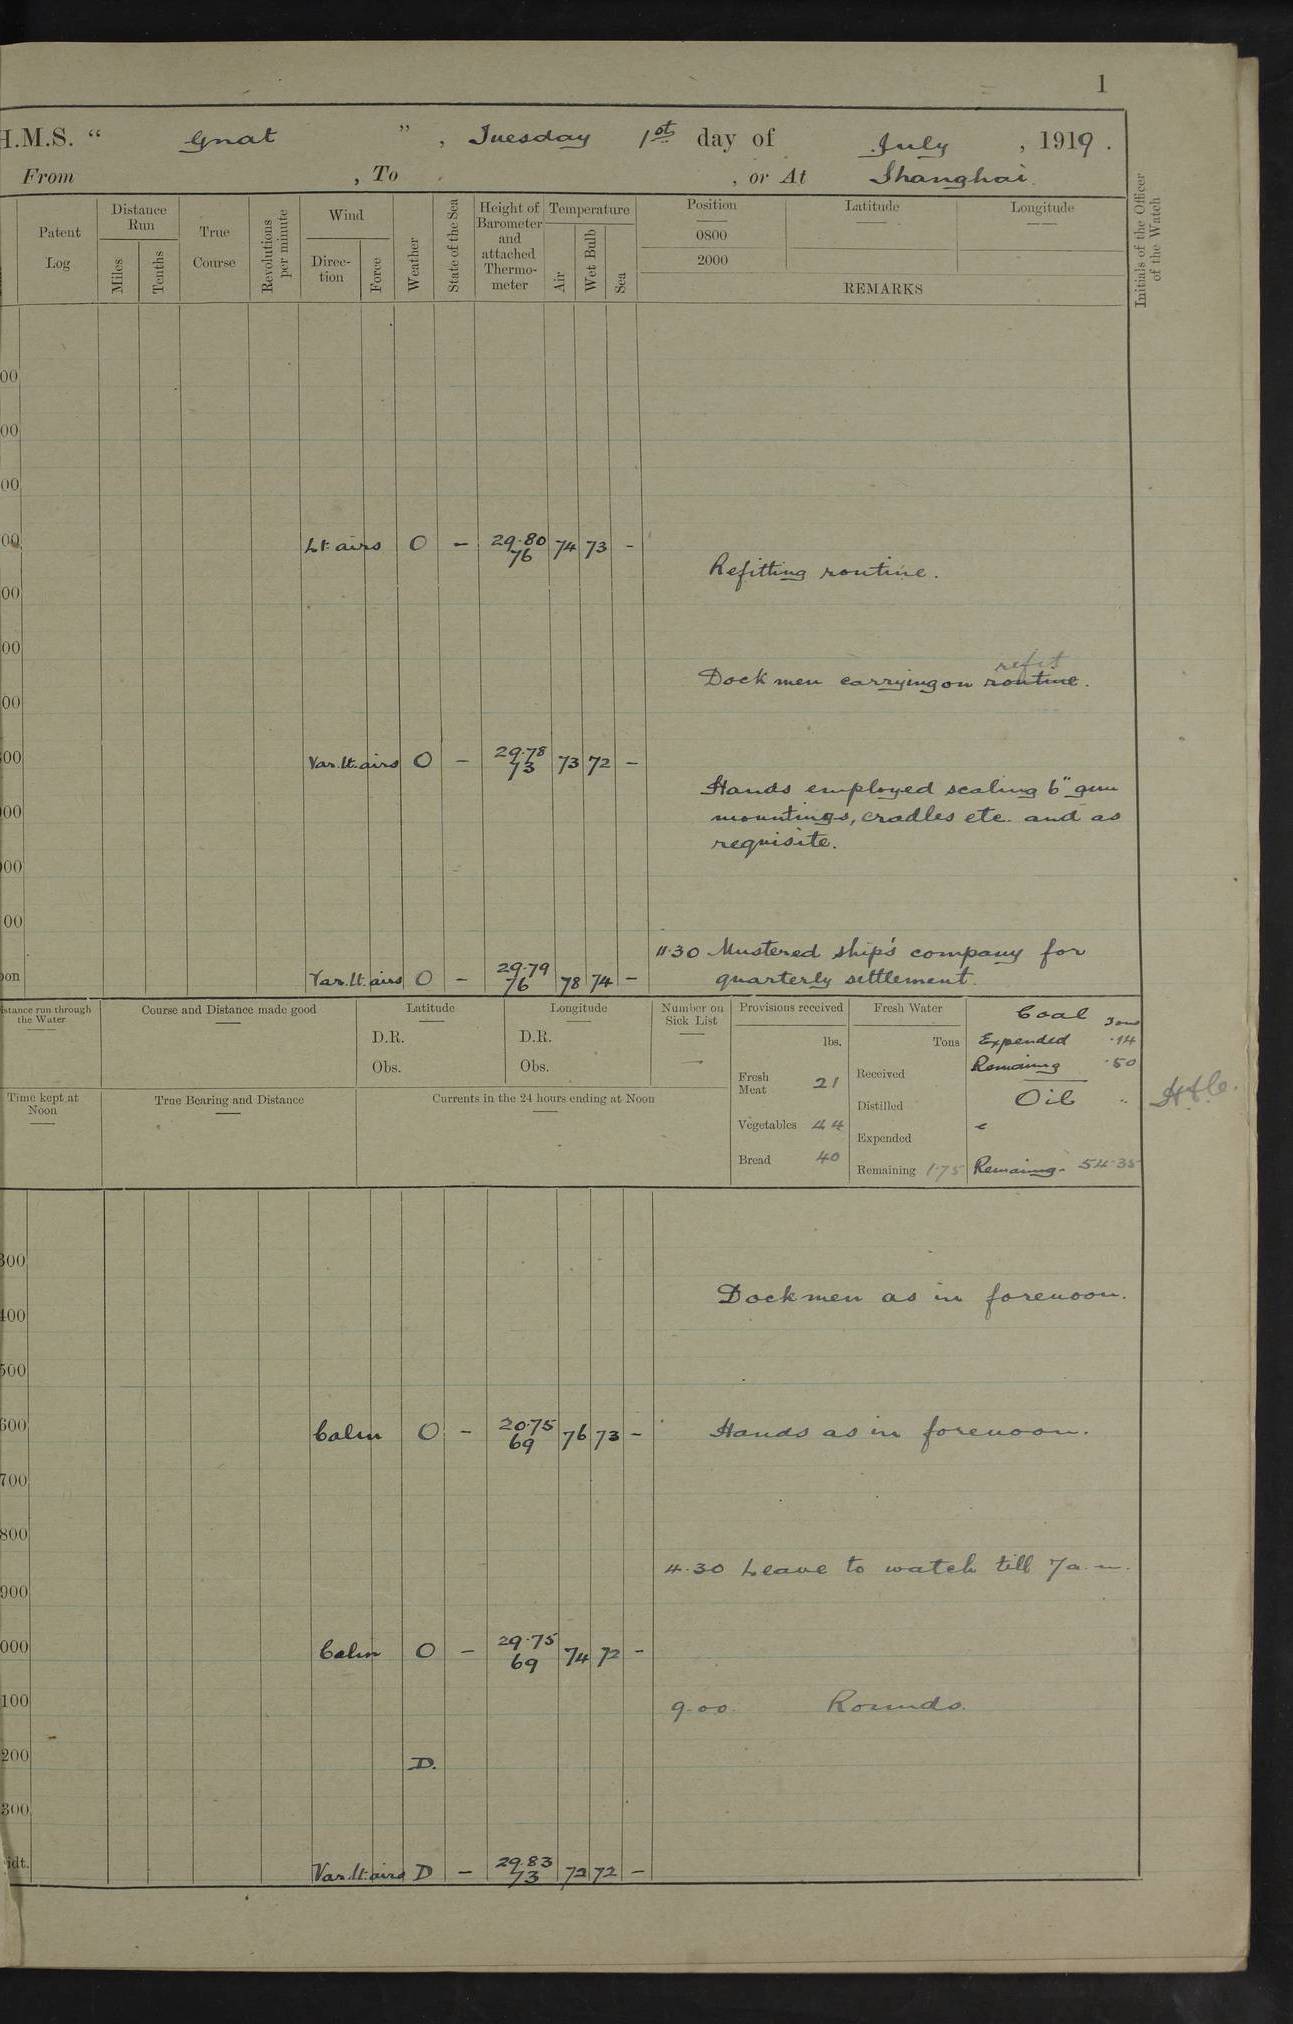 1
H.M.S. “ Gnat ” , Tuesday 1st day of July , 1919 .
From , To , or At Shanghai.
Patent Log
Distance Run
Miles
Tenths
True Course
Revolutions per minute
Wind
Direc- tion
Force
Weather
State of the Sea
Height of Barometer and attached Thermo- meter
Temperature
Air
Wet Bulb
Sea
Position
0800
2000
Latitude
Longitude
REMARKS
Initials of the Officer of the Watch
00
00
00
00 Lt airs O – 29.80 76 74 73 –
Refitting routine.
00
00
refit
Dockmen carrying on routine.
00
00 Var.lt.airs O – 29.78 73 73 72 –
Hands employed scaling 6" gun
mountings, cradles etc. and as
requisite.
00
00
00
11.30 Mustered ship's company for
quarterly settlement.
oon Var.lt.airs O – 29.79 76 78 74 –
istance run through the Water
Course and Distance made good
Latitude
D.R.
Obs.
Longitude
D.R.
Obs.
Number on Sick List
–
Provisions received
lbs.
Fresh Meat 21
Vegetables 44
Bread 40
Fresh Water
Tons
Received
Distilled
Expended
Remaining 1.75
Coal Tons
Expended .14
Remaining .50
Oil
Remaining - 54.35
Time kept at Noon
True Bearing and Distance
Currents in the 24 hours ending at Noon
300
Dockmen as in forenoon.
400
500
600 Calm O – 20.75 69 76 73 – Hands as in forenoon.
700
800
4.30 Leave to watch till 7 a.m.
900
000 Calm O – 29.75 69 74 72 –
100 9.00. Rounds.
200 D.
300
idt. Var.lt.airs D – 29.83 73 72 72 –